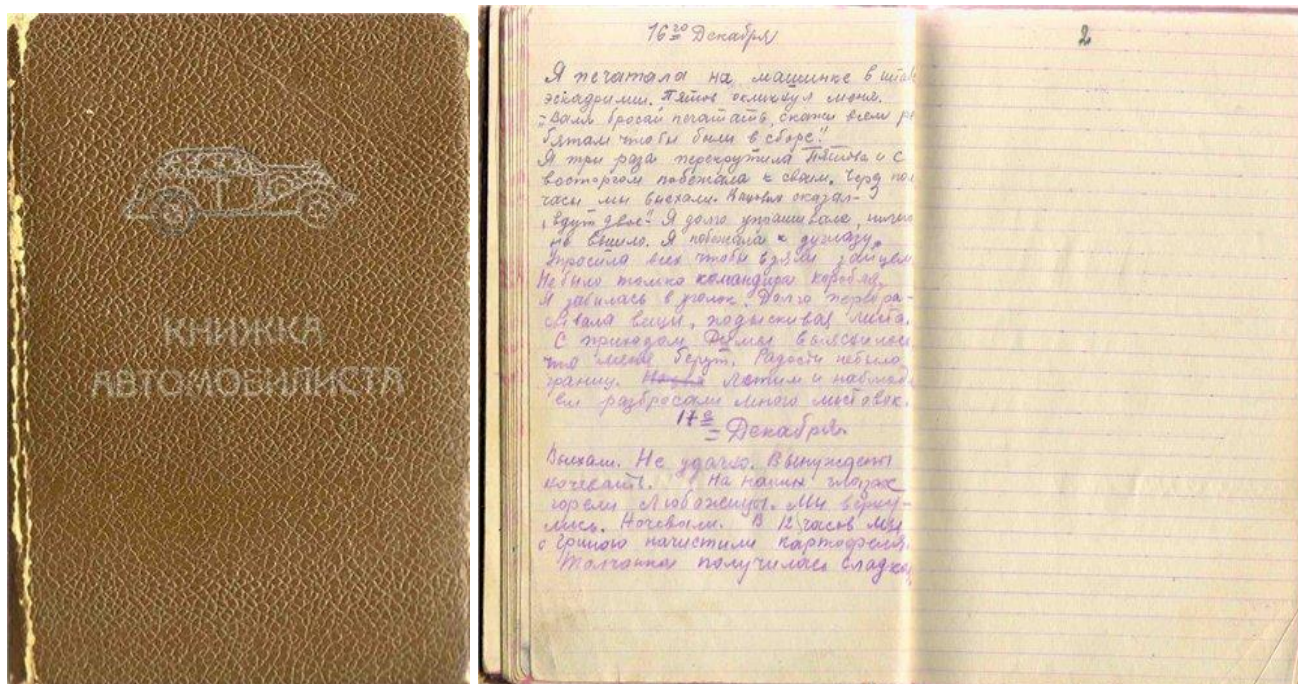 КНИЖКА
АВТОМОБИЛИСТА
16го Декабря
2
Я печатала на машинке в штабе
эскадрилии. Пятов окликнул меня.
"Валя бросай печатать, скажи всем ре
бятам чтобы были в сборе".
Я три раза перекрутила Пятова и с
восторгом побежала к своим. Через пол
часа мы выехали. оказал-
"едут двое". Я долго упрашивала, ничего
не вышло. Я побежала к дугласу.
Упросила всех чтобы взяли зайцем
Небыло только командира корабля.
Я забилась в уголок. Долго перебра-
сывала вещи, подыскивая места.
С приходом Димы выяснилось
что меня берут. Радости небыло
границ. Летим и наблюд
ем разбросали много листовок.
17е Декабря.
Выехали. Не удачно. Вынуждены
ночевать. На наших глазах
горели Любаженцы. Мы верну-
лись. Ночевали. В 12 часов мы
с начистили картофеля.
Толчонка получилась сладкой